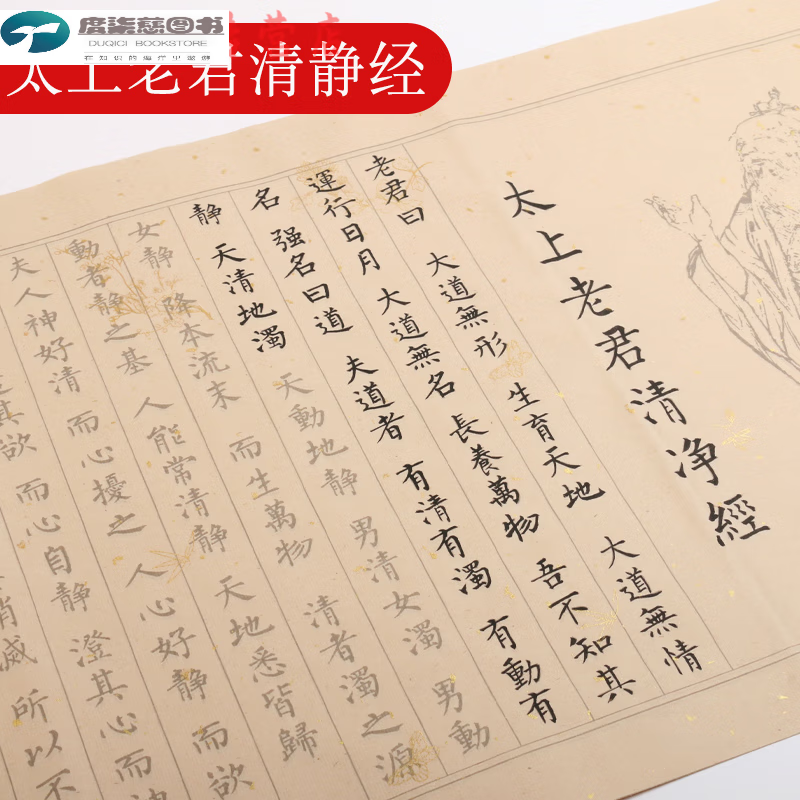 度柒慈图书
DUQICI BOOKSTORE
在知识的海洋里遨游
营店
太上老君清静经
太上老君清净經
老君曰 大道無形 生育天地 大道無情
運行日月 大道無名 長養萬物 吾不知其
名 强名曰道 夫道者 有清有濁 有動有
静 天清地濁 天動地静 男清女濁 男動
女静 降本流末 而生萬物 清者濁之源
動者静之基 人能常清静 天地悉皆歸
夫人神好清 而心擾之 人心好静 而欲
其欲 而心自静 澄其心而
滅 所以不